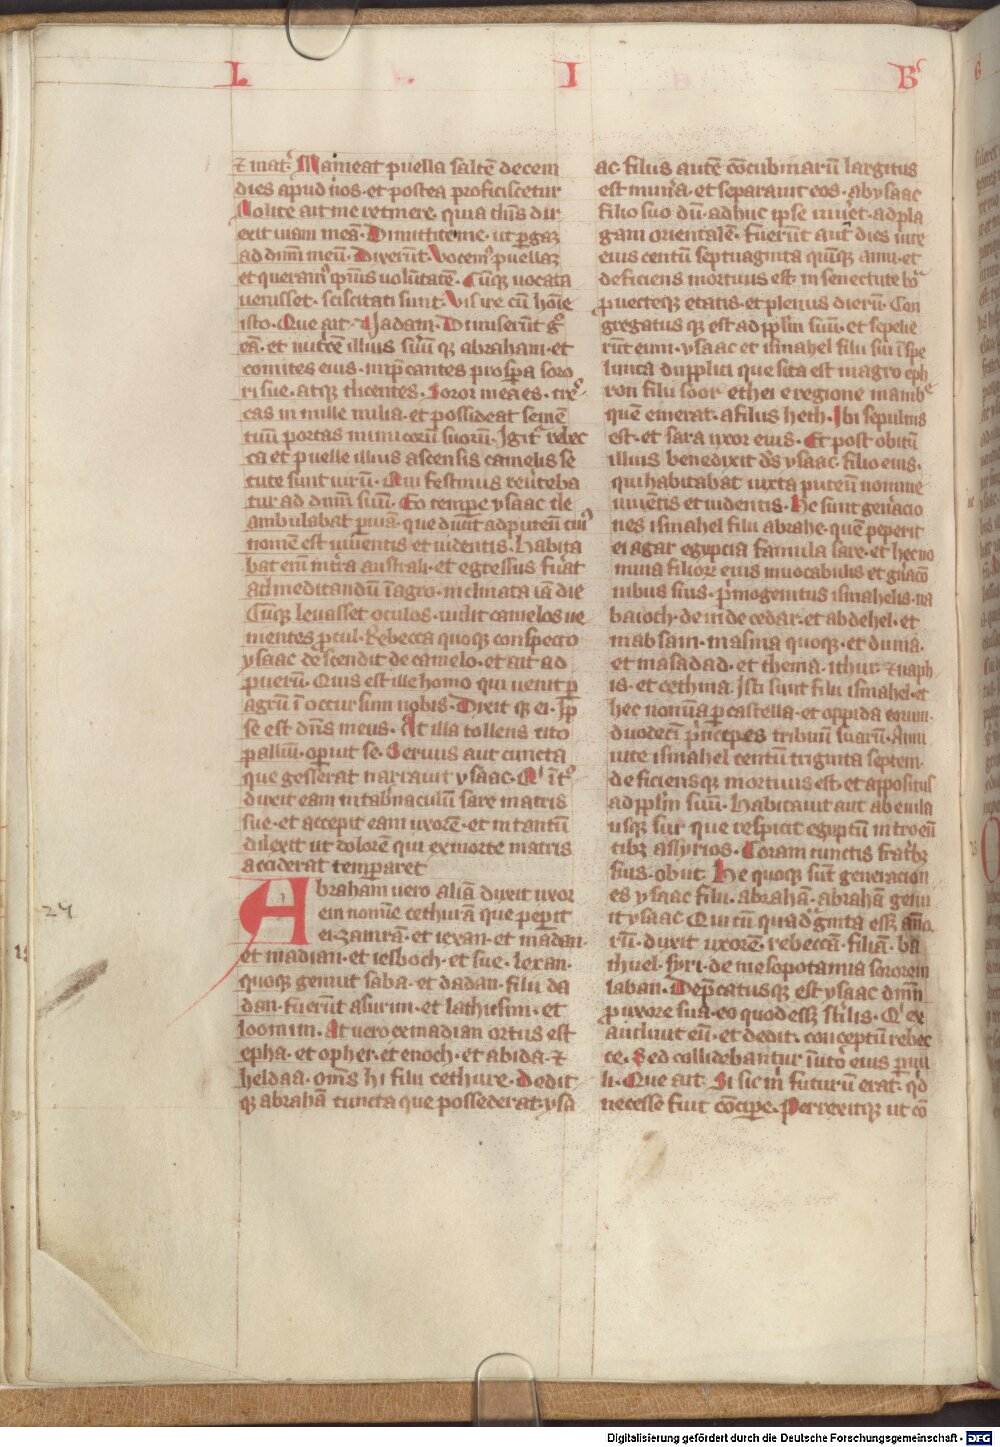 L I B
& mat̄. Maneat puella saltē decem
dies apud nos · et postea proficiscetur
Nolite ait me retinere · quia dn̄s dir
exit uiam meā · Dimittite me · ut pergā
ad dnm̄ meū · Dixerūt · Vocemꝰ puellaꝫ
et queramꝰ ipsius volūtatē · Cūqꝫ uocata
uenisset · sciscitati sunt · Vis ire cū hoīe
isto · Que ait · Uadam · Dimiserūt gͦ
eā · et nutricē illius suūqꝫ abraham · et
comites eius · imp̄cantes prosꝑa soro
ri sue · atqꝫ dicentes · Soror nr̄a es · cres
cas in mille milia · et possideat semē
tuū portas inimicorū suorū · Igit rebec
ca et puelle illius ascensis camelis se
cute sunt uirū · Qui festinus reūteba
tur ad dnm̄ suū · Eo temꝑe ysaac de
ambulabat ꝑ uiā · que ducit ad puteū cuiꝰ
nomē est uiuentis et uidentis · Habita
bat enī in t̄ra australi · et egressus fu̅at
ad meditandū ī agro · inclinata iā die
Cūqꝫ leuasset oculos · uidit camelos ue
nientes ꝓcul · Rebecca quoqꝫ conspecto
ysaac descendit de camelo · et ait ad
puerū · Quis est ille homo qui uenit ꝑ
agrū ī occursum nobis · Dixit qꝫ ei · Ip
se est dn̄s meus · At illa tollens cito
pallium · operuit se · Seruus aut cuncta
que gesserat narrauit ysaac · Qͥ īt
duxit eam in tabnaculū sare matris
sue · et accepit eam uxorē · et in tantū
dilexit ut dolorē qui ex morte matris
acciderat temperaret
Abraham uero aliā duxit uxor
em nomīe cethurā que peperit
ei zamrā · et iexan · et madan ·
et madian · et iesboch · et sue · Iexan ·
quoqꝫ genuit saba · et dadan · filii da
dan · fuerūt asurim · et lathusim · et
loomim · At uero ex madian ortus est
epha · et opher · et enoch · et abida · &
heldaa · oms̄ hi filii cethure · Dedit
qꝫ abrahā cuncta que possederat · ysa
24
ac · filiis autē cōcubinarū largitus
est mun̄a · et separauit eos · ab ysaac
filio suo dū · adhuc ipse uiuet · ad pla
gam orientalē · Fuerūt aut dies uite
eius centū septuaginta quīqꝫ anni · et
deficiens mortuus est · in senectute boͣ
ꝓuecteqꝫ etatis · et plenus dierū · Con
gregatus qꝫ est ad pplm̄ suū · et sepelie
rūt eum · ysaac et ismahel filii sui ī spe
lunca duplici que sita est in agro eph
ron filii soor ethei e regione mambͤ
quē emerat · a filiis heth · Ibi sepultus
est · et sara uxor eius · Et post obitū
illius benedixit ds̄ ysaac · filio eius ·
qui habitabat iuxta puteū nomine
uiuētis et uidentis · He sunt genacio
nes ismahel filii abrahe · quē peperit
ei agar egypcia famula sare · et hec no
mina filiorꝫ eius in uocabulis et gn̄acō
nibus suis · Primogenitus ismahelis · na
baioch · deinde cedar · et abdehel · et
mabsam · masma quoqꝫ · et duma ·
et massa · dad · et thema · ithur · & naph
is · et cethma · Isti sunt filii ismahel · et
hec nomīa ꝑ castella · et oppida eorum ·
duodecī prīcipes tribuū suarū · Anni
uite ismahel centū triginta septem ·
deficiensqꝫ mortuus est · et appositus
ad pplm̄ suū · Habitauit aut ab euila
usqꝫ sur · que respicit egyptū introeū
tibꝫ assyrios · Coram cunctis fratbꝫ
suis · obiit · He quoqꝫ sūt generacion
es ysaac filii · abrahā · abrahā genu
it ysaac · Qui cū quadginta essꝫ anno
rū · duxit uxorē · rebeccā · filiā · ba
thuel · syri · de mesopotamia sororem
laban · Dep̄catusqꝫ est ysaac dnm̄
ꝓ uxore sua · eo quod essꝫ stilis · Qͥ ex
audiuit eū · et dedit · conceptū rebec
ce · Sed collidebantur ī utō eius ꝑuu
li · Que ait · Si sic mͥ futurū erat · qͥd
necesse fuit cōciꝑe · Perrexitqꝫ ut cō
Digitalisierung gefördert durch die Deutsche Forschungsgemeinschaft - DFG